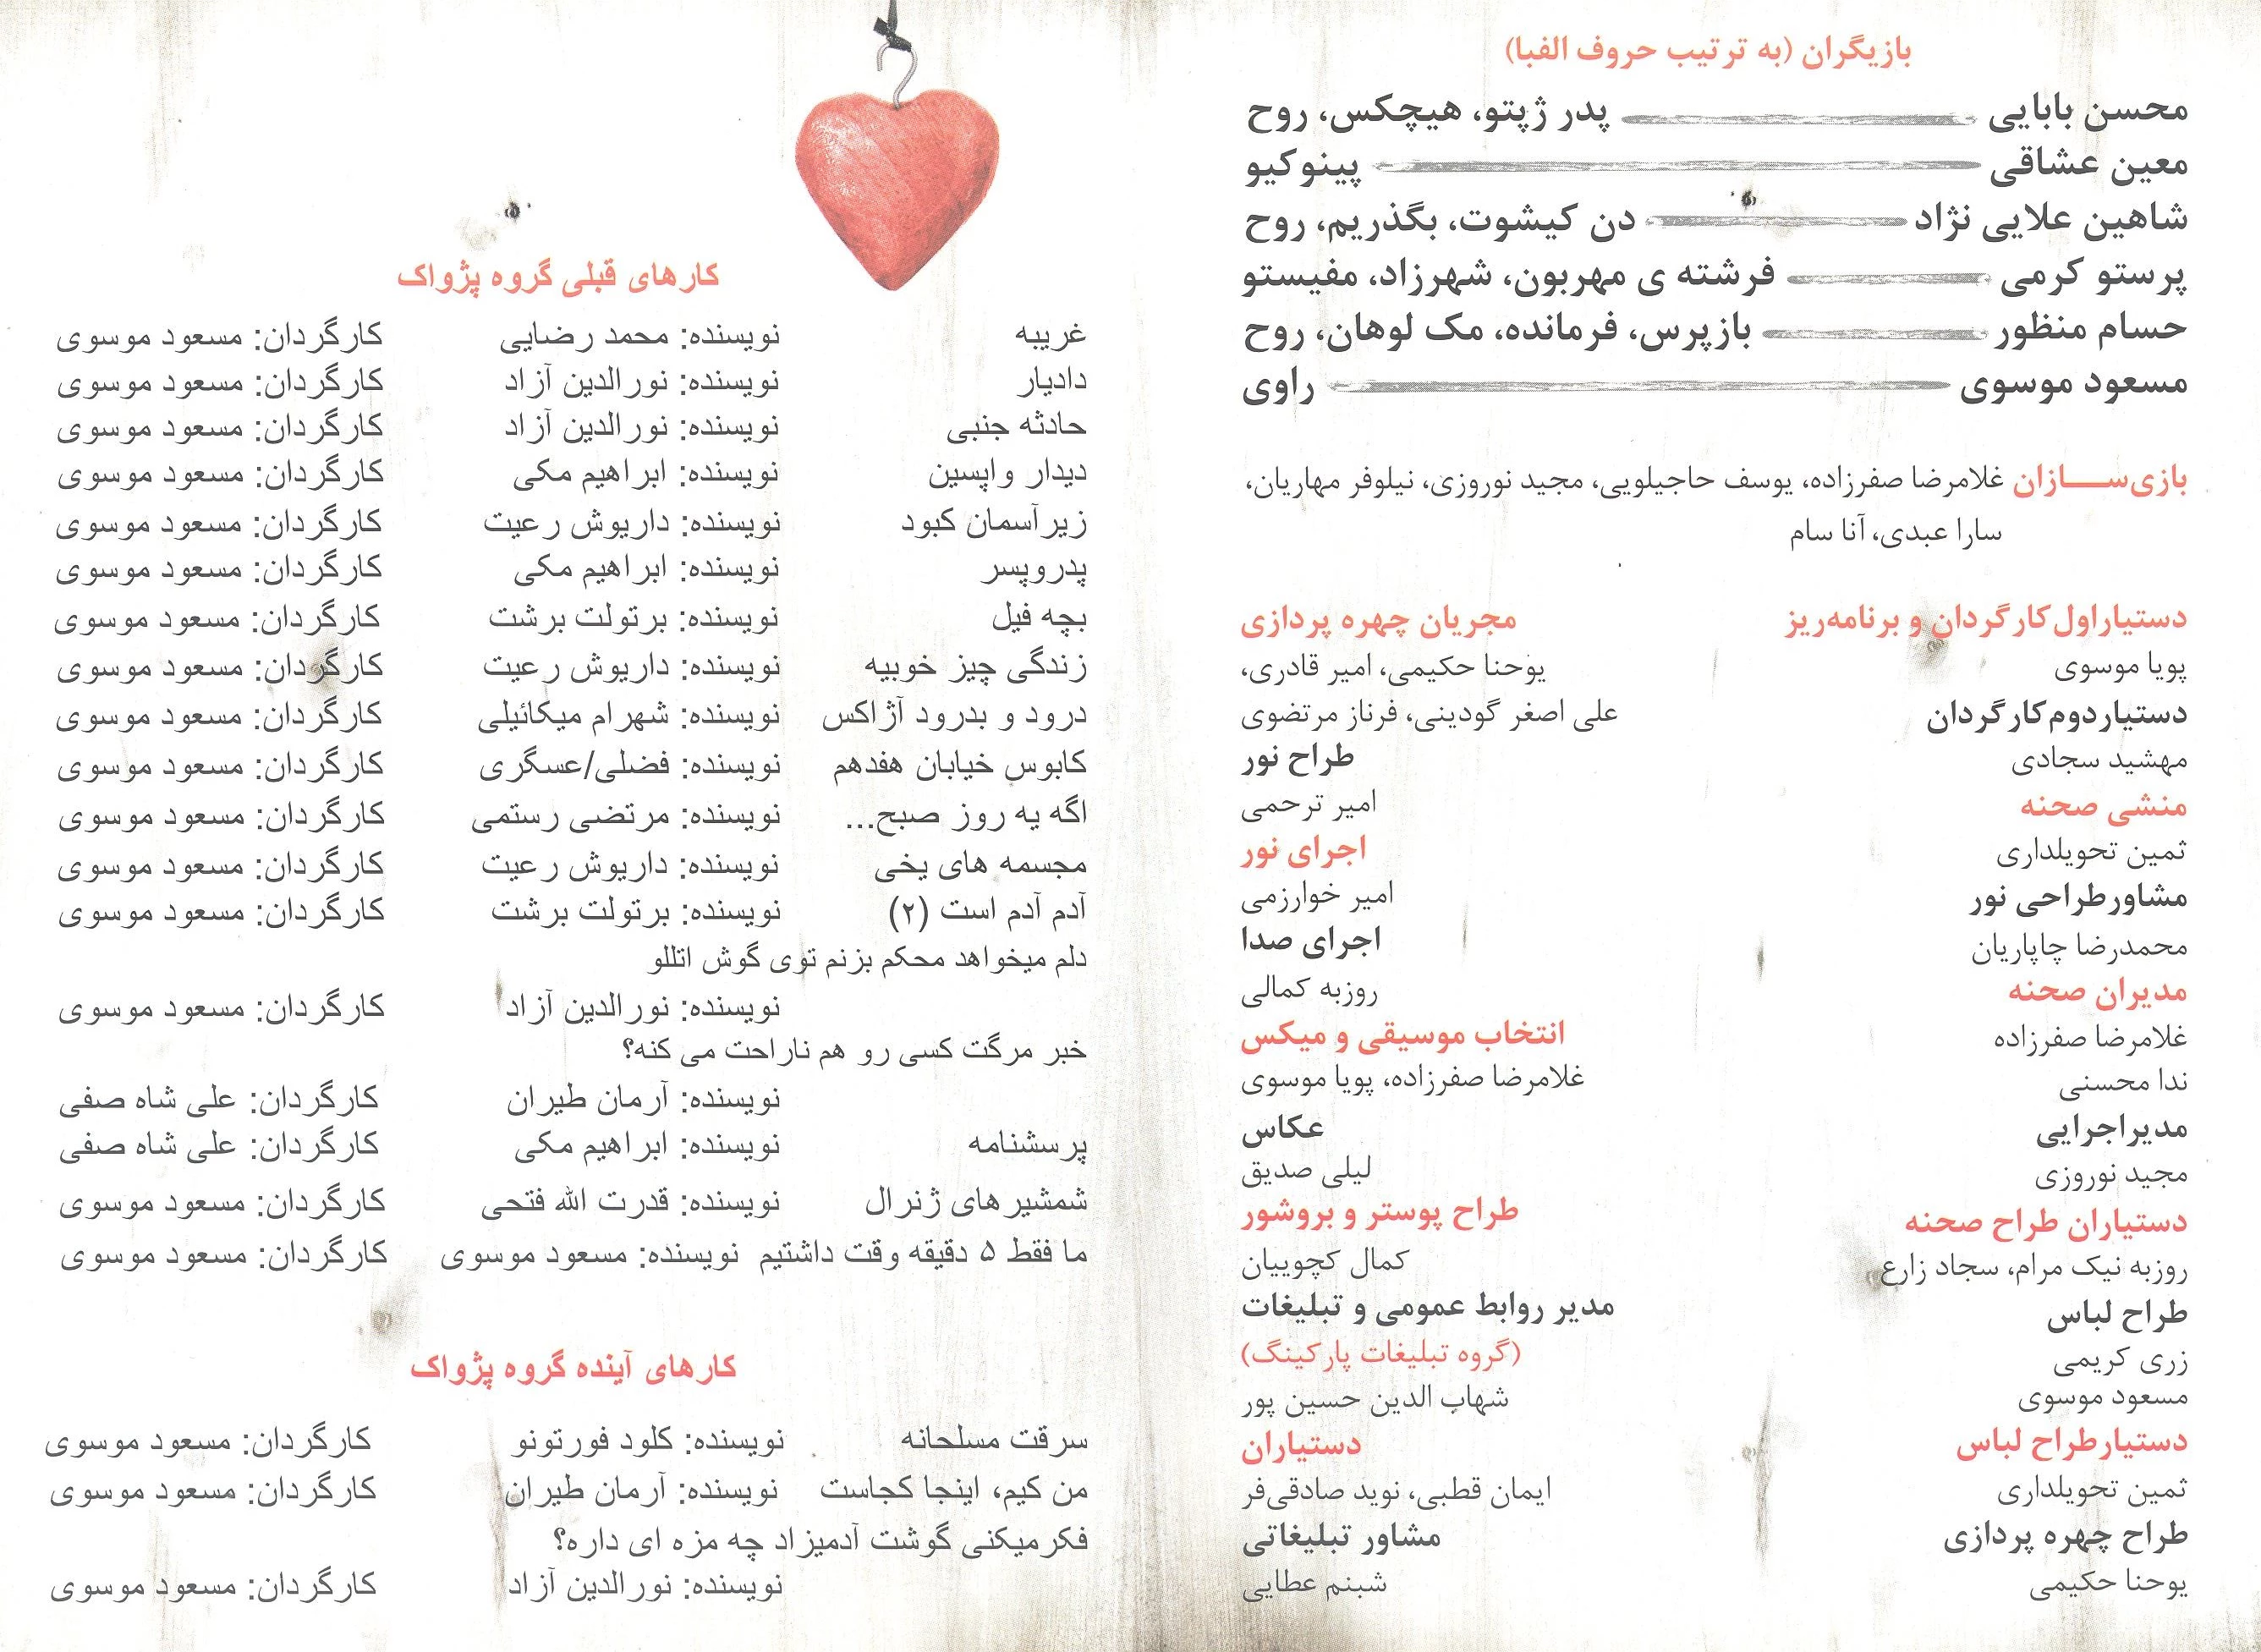 بازیگران (به ترتیب حروف الفبا)
محسن بابایی پدر ژپتو، هیچکس، روح
معین عشاقی پینوکیو
شاهین علایی نژاد دن کیشوت، بگذریم، روح
پرستو کرمی فرشته ی مهربون، شهرزاد، مفیستو
حسام منظور بازپرس، فرمانده، مک لوهان، روح
مسعود موسوی راوی
بازی‌ســـازان غلامرضا صفرزاده، یوسف حاجیلویی، مجید نوروزی، نیلوفر مهاریان،
سارا عبدی، آنا سام
دستیاراول‌کارگردان و برنامه‌ریز
پویا موسوی
دستیاردوم‌کارگردان
مهشید سجادی
منشی صحنه
ثمین تحویلداری
مشاورطراحی نور
محمدرضا چاپاریان
مدیران صحنه
غلامرضا صفرزاده
ندا محسنی
مدیراجرایی
مجید نوروزی
دستیاران طراح صحنه
روزبه نیک مرام، سجاد زارع
طراح لباس
زری کریمی
مسعود موسوی
دستیارطراح لباس
ثمین تحویلداری
طراح چهره پردازی
یوحنا حکیمی
مجریان چهره پردازی
یوحنا حکیمی، امیر قادری،
علی اصغر گودینی، فرناز مرتضوی
طراح نور
امیر ترحمی
اجرای نور
امیر خوارزمی
اجرای صدا
روزبه کمالی
انتخاب موسیقی و میکس
غلامرضا صفرزاده، پویا موسوی
عکاس
لیلی صدیق
طراح پوستر و بروشور
کمال کچوییان
مدیر روابط عمومی و تبلیغات
(گروه تبلیغات پارکینگ)
شهاب الدین حسین پور
دستیاران
ایمان قطبی، نوید صادقی‌فر
مشاور تبلیغاتی
شبنم عطایی
کارهای قبلی گروه پژواک
غریبه نویسنده: محمد رضایی کارگردان: مسعود موسوی
دادیار نویسنده: نورالدین آزاد کارگردان: مسعود موسوی
حادثه جنبی نویسنده: نورالدین آزاد کارگردان: مسعود موسوی
دیدار واپسین نویسنده: ابراهیم مکی کارگردان: مسعود موسوی
زیرآسمان کبود نویسنده: داریوش رعیت کارگردان: مسعود موسوی
پدروپسر نویسنده: ابراهیم مکی کارگردان: مسعود موسوی
بچه فیل نویسنده: برتولت برشت کارگردان: مسعود موسوی
زندگی چیز خوبیه نویسنده: داریوش رعیت کارگردان: مسعود موسوی
درود و بدرود آژاکس نویسنده: شهرام میکائیلی کارگردان: مسعود موسوی
کابوس خیابان هفدهم نویسنده: فضلی/عسگری کارگردان: مسعود موسوی
اگه یه روز صبح... نویسنده: مرتضی رستمی کارگردان: مسعود موسوی
مجسمه های یخی نویسنده: داریوش رعیت کارگردان: مسعود موسوی
آدم آدم است (۲) نویسنده: برتولت برشت کارگردان: مسعود موسوی
دلم میخواهد محکم بزنم توی گوش اتللو
نویسنده: نورالدین آزاد کارگردان: مسعود موسوی
خبر مرگت کسی رو هم ناراحت می کنه؟
نویسنده: آرمان طیران کارگردان: علی شاه صفی
پرسشنامه نویسنده: ابراهیم مکی کارگردان: علی شاه صفی
شمشیرهای ژنرال نویسنده: قدرت الله فتحی کارگردان: مسعود موسوی
ما فقط ۵ دقیقه وقت داشتیم نویسنده: مسعود موسوی کارگردان: مسعود موسوی
کارهای آینده گروه پژواک
سرقت مسلحانه نویسنده: کلود فورتونو کارگردان: مسعود موسوی
من کیم، اینجا کجاست نویسنده: آرمان طیران کارگردان: مسعود موسوی
فکرمیکنی گوشت آدمیزاد چه مزه ای داره؟
نویسنده: نورالدین آزاد کارگردان: مسعود موسوی